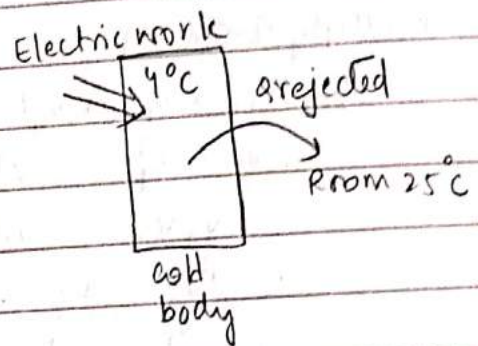 Electric work
4°C
Qrejected
Room 25°C
cold
body